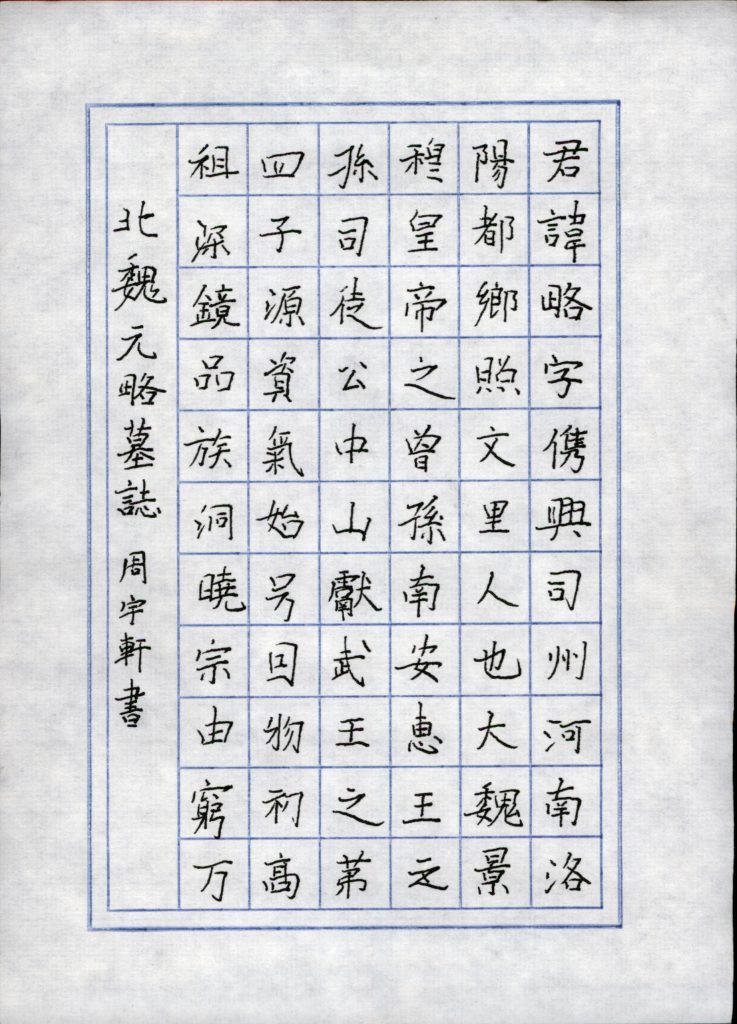 君諱略字儁興司州河南洛
陽都鄉照文里人也大魏景
穆皇帝之曾孫南安惠王之
孫司徒公中山獻武王之第
四子源資氣始号回物初高
祖深鏡品族洞曉宗由窮万
北魏元略墓誌 周宇軒書